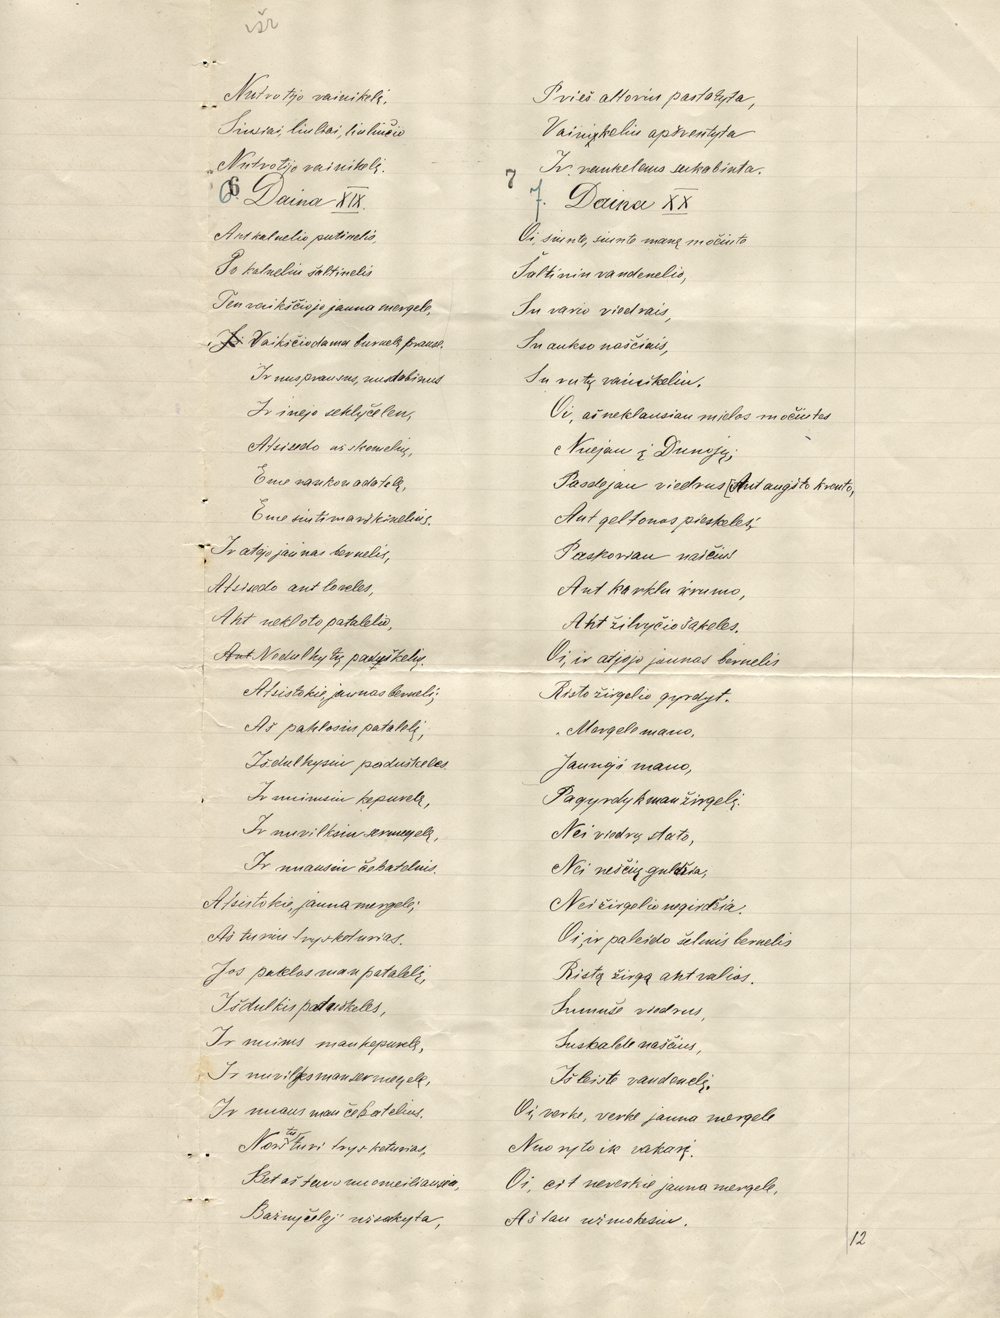 Nutrotijo vainikelį,
Siusiai, liuliai, liuliučio
Nutrotijo vainikelį.
6 Daina XIX.
Ant kalnelio putinelis,
Po kalneliu šaltinelis
Ten vaikščiojo jauna mergele,
Vaikščiodama burnelę prause.
Ir nusprausus, nudabinus
Ir inejo seklyčelen,
Atsisedo už skomelių,
Eme rankon adatėlę,
Eme siuti marškinelius.
Ir atejo jaunas bernelis,
Atsisedo ant loveles,
Ant nekloto patalėlio,
Ant Nedulkytų paduškelių.
Atsistokie, jaunas berneli,
Aš paklosiu patalėlį,
Išdulkysiu paduškeles
Ir nuimsiu kepurelę,
Ir nuvilksiu sermegelę,
Ir nuausiu čebatelius.
Atsistokie, jauna mergele,
Aš turiu trys-keturias.
Jos paklos man patalėlį,
Išdulkis paduškeles,
Ir nuims man kepurelę,
Ir nuvilks man sermegelę,
Ir nuaus man čebatelius.
Nors tu turi trys-keturias,
Bet aš tavo nuomeiliausia,
Bažnyčelėj užsakyta,
Prieš altorius pastatyta,
Vainikeliu apšventyta
Ir rankelems sukabinta.
7
7. Daina XX
Oi, siunte, siunte manę močiute
Šaltinin vandenelio,
Su vario viedrais,
Su aukso naščiais,
Su rutų vainikeliu.
Oi, aš neklausiau mielos močiutes
Nuejau į Dunojų;
Pasdejau viedrus [Ant augšto kranto,
Ant geltonos pieskeles;
Paskoriau naščius
Ant karklu krumo,
Ant žilvyčio šakeles.
Oi, ir atjojo jaunas bernelis
Risto žirgelio gyrdyt.
Mergele mano,
Jaunoji mano,
Pagyrdyk man žirgelį.
Nei viedrų stato,
Nei neščių guldžia,
Nei žirgelio negirdžia.
Oi, ir paleido šelmis bernelis
Ristą žirgą ant valios.
Sumuše viedrus,
Suskalde naščius,
Išleiste vandenėlį.
Oi, verke, verke jauna mergele
Nuo ryto ik vakarį.
Oi, cit neverkie jauna mergele,
Aš tau užmokesiu.
12